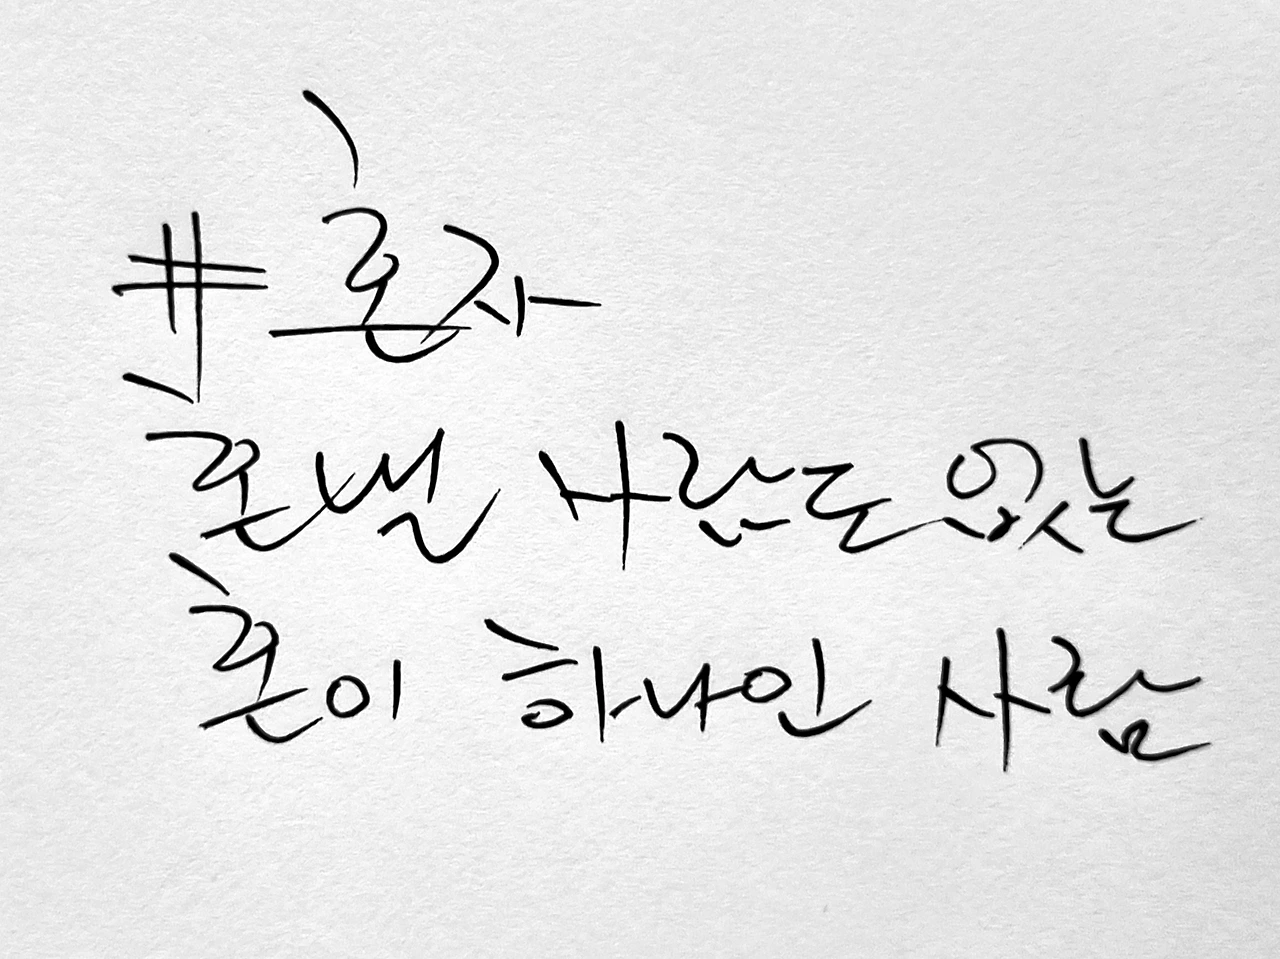 #혼자
혼낼 사람도 없는
혼이 하나인 사람